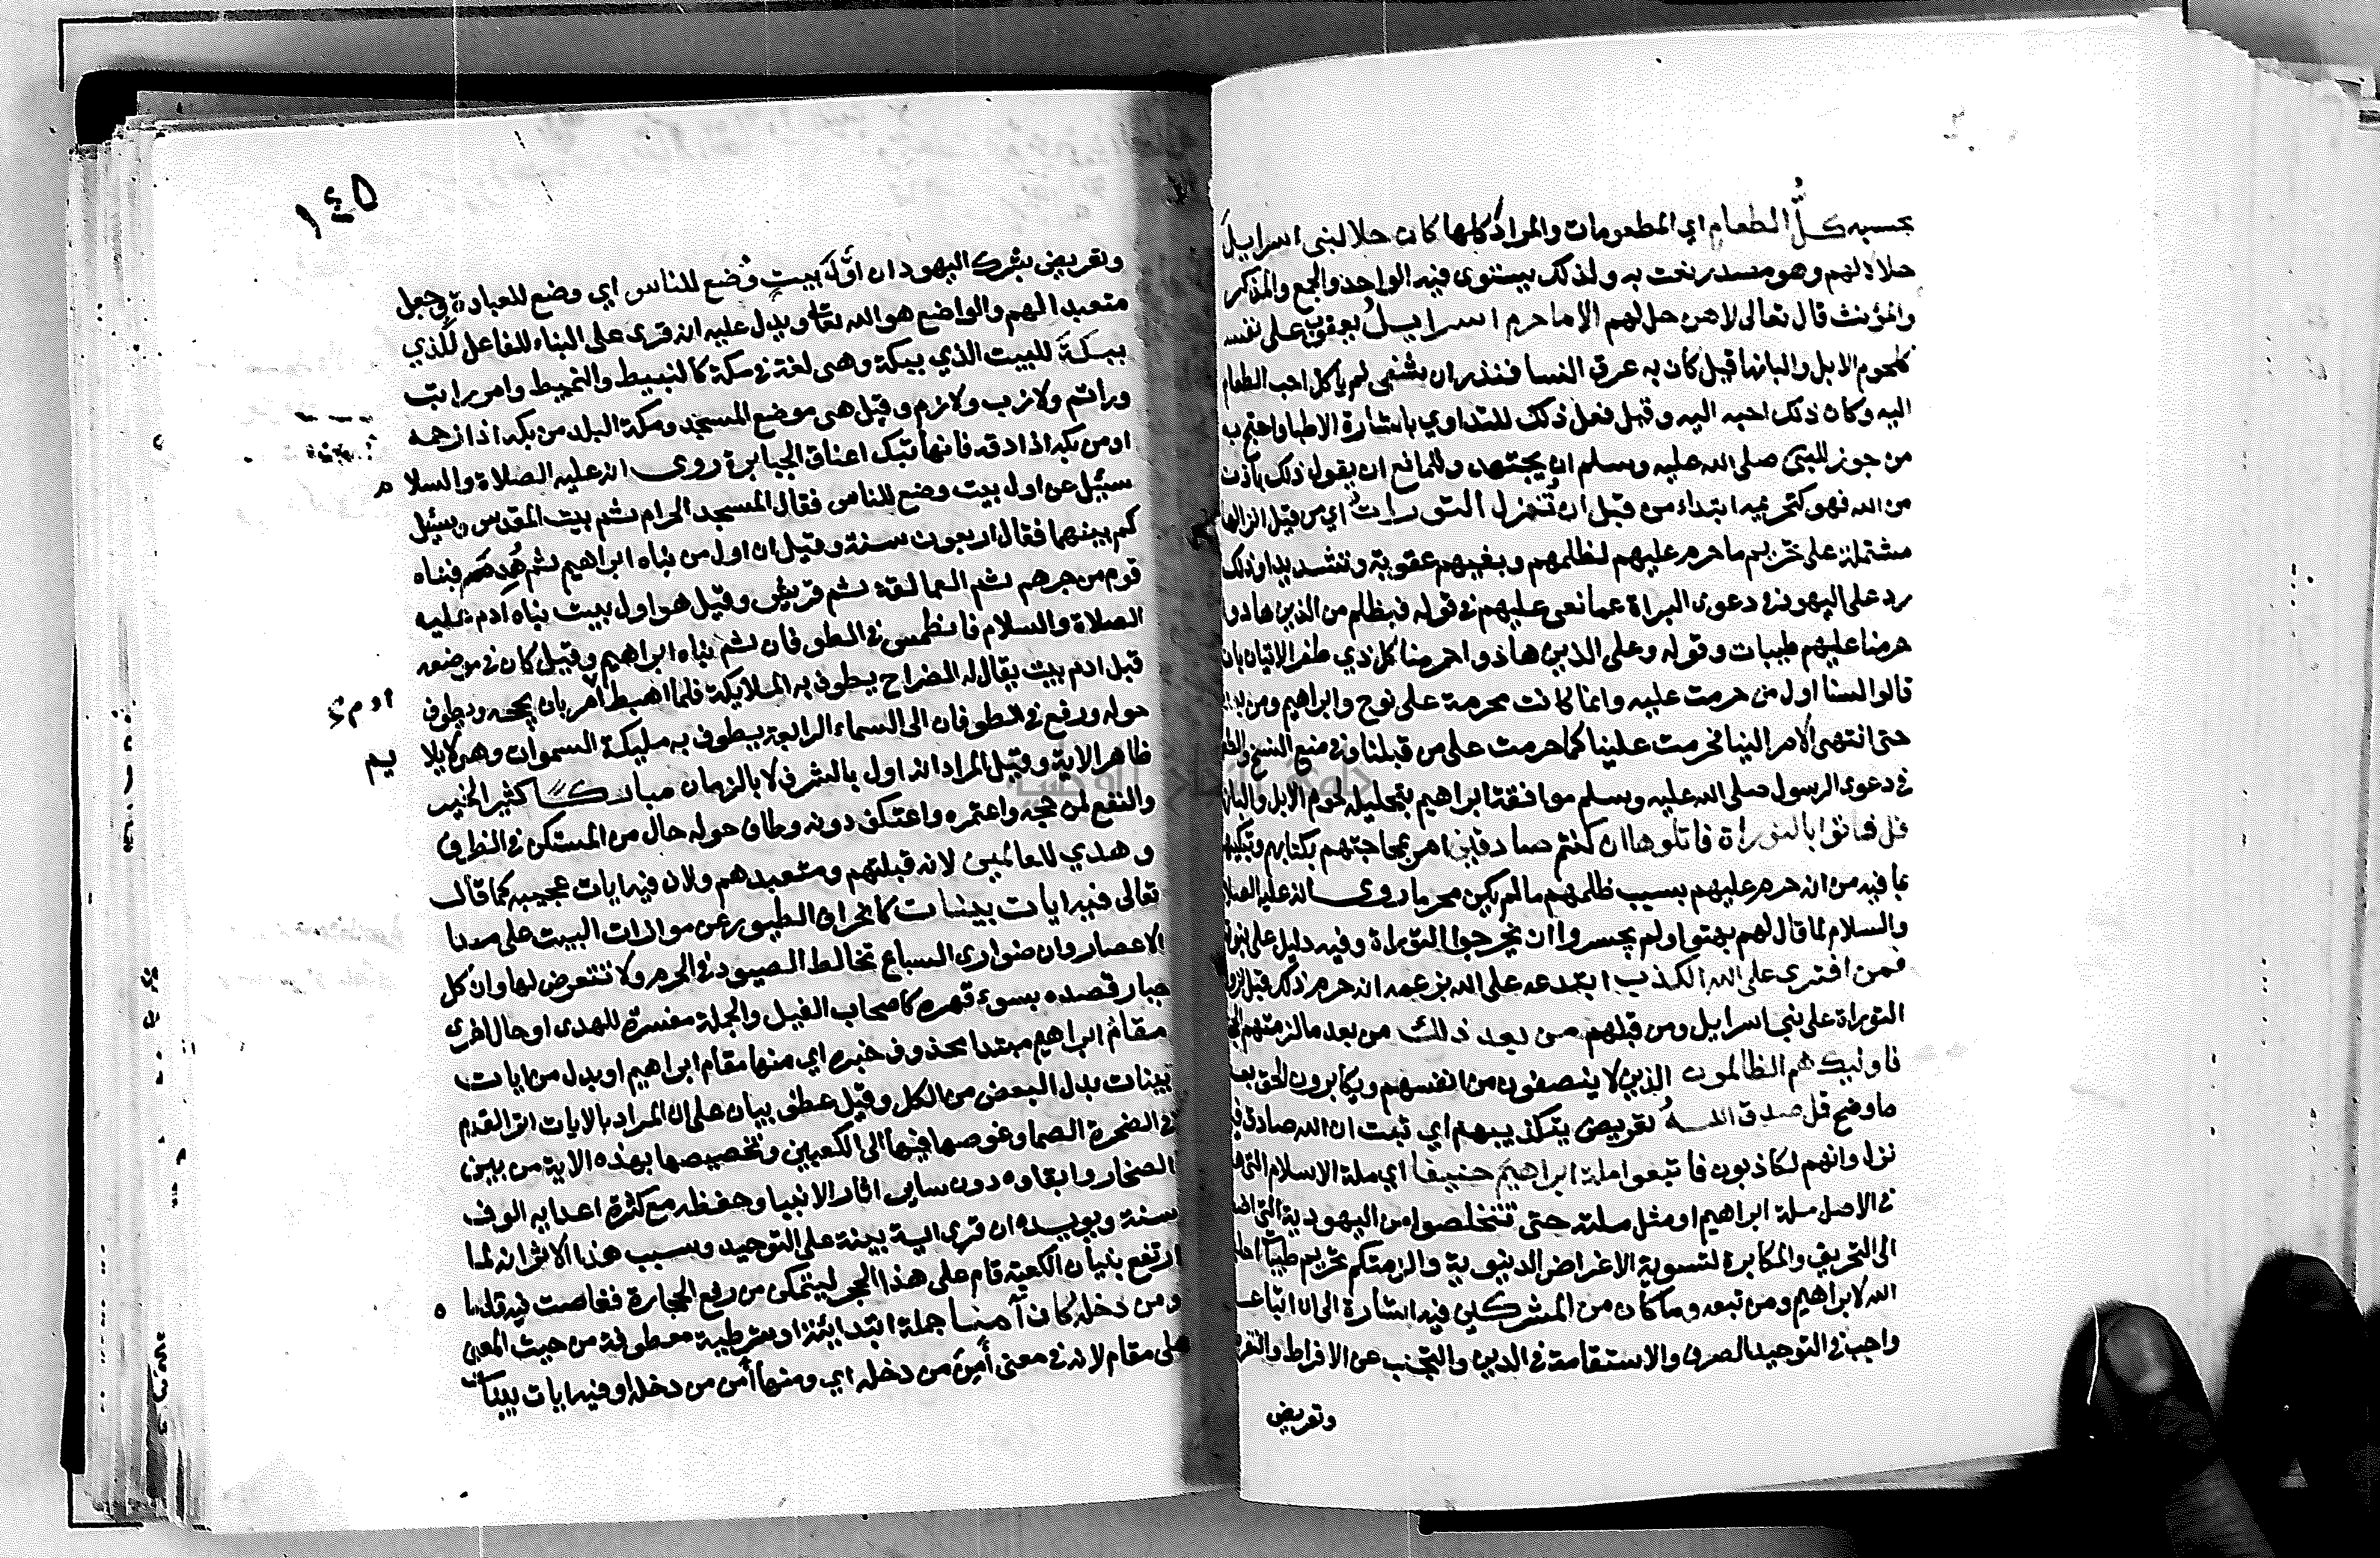 بحسبه كلُّ الطعام اي المطعومات والمراد كلها كان حلا لبني اسرايل
حلالا لهم وهو مصدر نعت به ولذلك يستوى فيه الواحد والجمع والمذكر
والمؤنث قال تعالى لاهن حل لهم الا ما حرم اسرايلُ يعقوب على نفسه
كلحوم الابل والبانها قيل كان به عرق النسا فنذر ان شفى لم ياكل احب الطعام
اليه وكان ذلك احبه اليه وقيل فعل ذلك للتداوي باشارة الاطبا واحتج به
من جوز للنبي صلى الله عليه وسلم ان يجتهد وللمانع ان يقول ذلك باذن
من الله فهو كتحريمه ابتداء من قبل ان تُنزل التورات اي من قبل انزالها
مشتملة على تحريم ما حرم عليهم لظلمهم وبغيهم عقوبة وتشديدا وذلك
رد على اليهود في دعوى البراة عما نعى عليهم في قوله فبظلم من الذين هادوا
حرمنا عليهم طيبات وقوله وعلى الذين هادوا حرمنا كل ذي ظفر الاتيان بان
قالوا لسنا اول من حرمت عليه وانما كانت محرمة على نوح وابراهيم ومن بعده
حتى انتهى الامر الينا فحرمت علينا كما حرمت على من قبلنا وفي منع النسخ والطعن
في دعوى الرسول صلى الله عليه وسلم موافقة ابراهيم بتحليله لحوم الابل والبانها
قل فاتوا بالتوراة فاتلوها ان كنتم صادقين امر بمحاجتهم بكتابهم وتبكيتهم
بما فيه من انه حرم عليهم بسبب ظلمهم ما لم يكن محرما روى انه عليه الصلاة
والسلام لما قال لهم بهتوا ولم يجسروا ان يخرجوا التوراة وفيه دليل على نبوته
فمن افترى على الله الكذب ابتدعه على الله بزعمه انه حرم ذلك قبل نزول
التوراة على بني اسرايل ومن قبلهم من بعد ذلك من بعد ما لزمتهم الحجة
فاوليك هم الظالمون الذين لا ينصفون من انفسهم ويكابرون الحق بعد
ما وضح قل صدق اللهُ تعريض بتكذيبهم اي ثبت ان الله صادق فيما
نزل وانهم لكاذبون فاتبعوا ملة ابراهيم حنيفا اي ملة الاسلام التي هي
في الاصل ملة ابراهيم او مثل ملته حتى تتخلصوا من اليهودية التي اضطرتكم
الى التحريف والمكابرة لتسوية الاغراض الدنيوية والزمتكم تحريم طيبات احلها
الله لابراهيم ومن تبعه وما كان من المشركين فيه اشارة الى ان اتباعه
واجب في التوحيد الصرف والاستقامة في الدين والتجنب عن الافراط والتفريط
وتعريض
١٤٥
وتعريض بشرك اليهود ان اوَّلَ بيتٍ وُضع للناس اي وضع للعبادة وجعل
متعبدا لهم والواضع هو الله تعالى ويدل عليه انه قرى على البناء للفاعل للَّذي
ببكةَ للبيت الذي ببكة وهى لغة في مكة كالنبيط والنميط وامر راتب
وراتم ولازب ولازم وقيل هى موضع المسجد ومكة البلد من بكه اذا زحمه
او من بكه اذا دقه فانها تبك اعناق الجبابرة روى انه عليه الصلاة والسلام
سئيل عن اول بيت وضع للناس فقال المسجد الحرام ثم بيت المقدس وسئيل
كم بينهما فقال اربعون سنة وقيل ان اول من بناه ابراهيم ثم هُدم فبناه
قوم من جرهم ثم العمالقة ثم قريش وقيل هو اول بيت بناه ادم عليه
الصلاة والسلام فانطمس في الطوفان ثم بناه ابراهيم وقيل كان في موضعه
قبل ادم بيت يقال له الضراح يطوف به الملايكة فلما اهبط امر بان يحجه ويطوف
ادم
حوله ورفع في الطوفان الى السماء الرابعة يطوف به مليكة السموات وهو لا يلا
يم
ظاهر الاية وقيل المراد انه اول بالشرف لا بالزمان مباركا كثير الخير
والنفع لمن حجه واعتمره واعتكف دونه وطاف حوله حال من المستكن في الظرف
وهدي للعالمين لانه قبلتهم ومتعبدهم ولان فيه ايات عجيبه كما قال
تعالى فيه ايات بينات كانحراف الطيور عن موازات البيت على مدا
الاعصار وان ضوارى السباع تخالط الصيود في الحرم ولا تتعرض لها وان كل
جبار قصده بسوء قهره كاصحاب الفيل والجملة مفسرة للهدى او حال اخرى
مقامُ ابراهيم مبتدا محذوف خبره اي منها مقام ابراهيم او بدل من ايات
بينات بدل البعض من الكل وقيل عطف بيان على ان المراد بالايات اثر القدم
في الصخرة الصما وغوصها فيها الى الكعبين وتخصيصها بهذه الاية من بين
الصخار وابقاوه دون ساير اثار الانبيا وحفظه مع كثرة اعدايه الوف
سنة ويويده ان قرى اية بينة على التوحيد وسبب هذا الاثر انه لما
ارتفع بنيان الكعبة قام على هذا الحجر ليتمكن من رفع الحجارة فغاصت فيه قدماه
ومن دخله كان آمنا جملة ابتدايئة او شرطية معطوفة من حيث المعنى
على مقام لانه في معنى أَمِنَ من دخله اي ومنها أمن من دخله او فيه ايات بينات